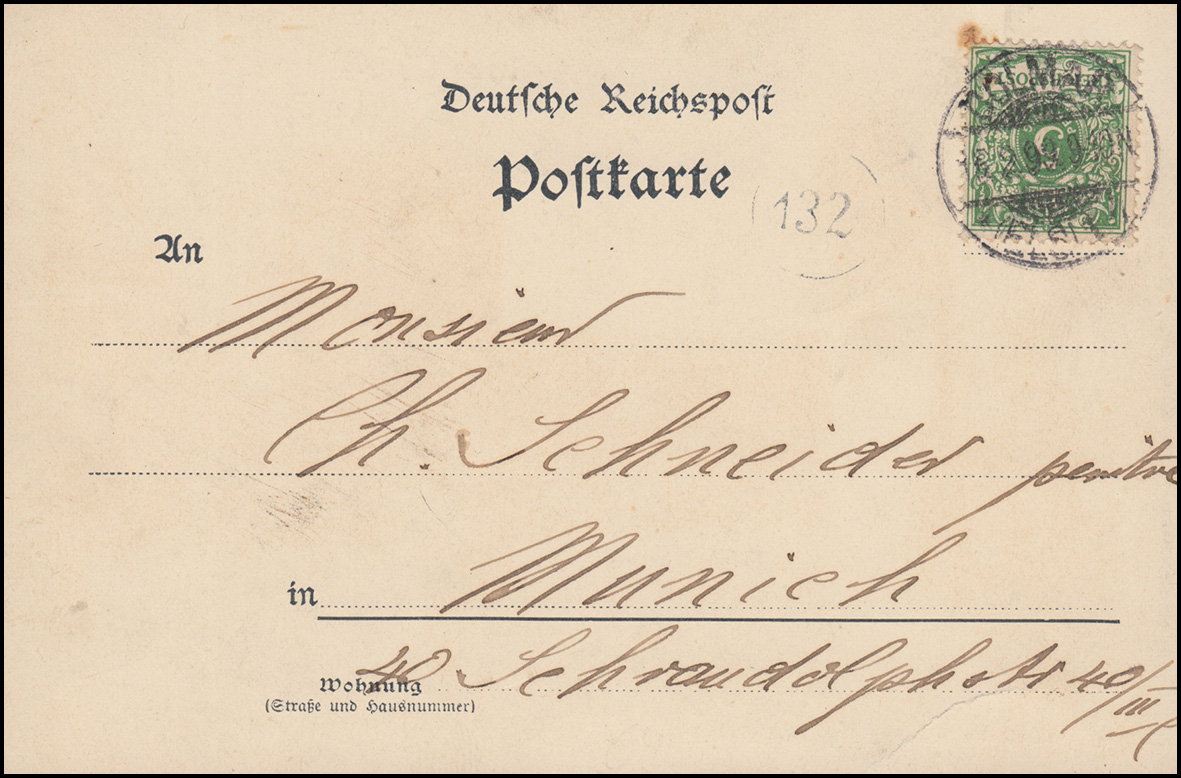 Deutsche Reichspost
Postkarte
132
An
Monsieur
Ch. Schneider peintre
in Munich
40 Schraudolphstr 40/III
Wohnung
(Straße und Hausnummer)